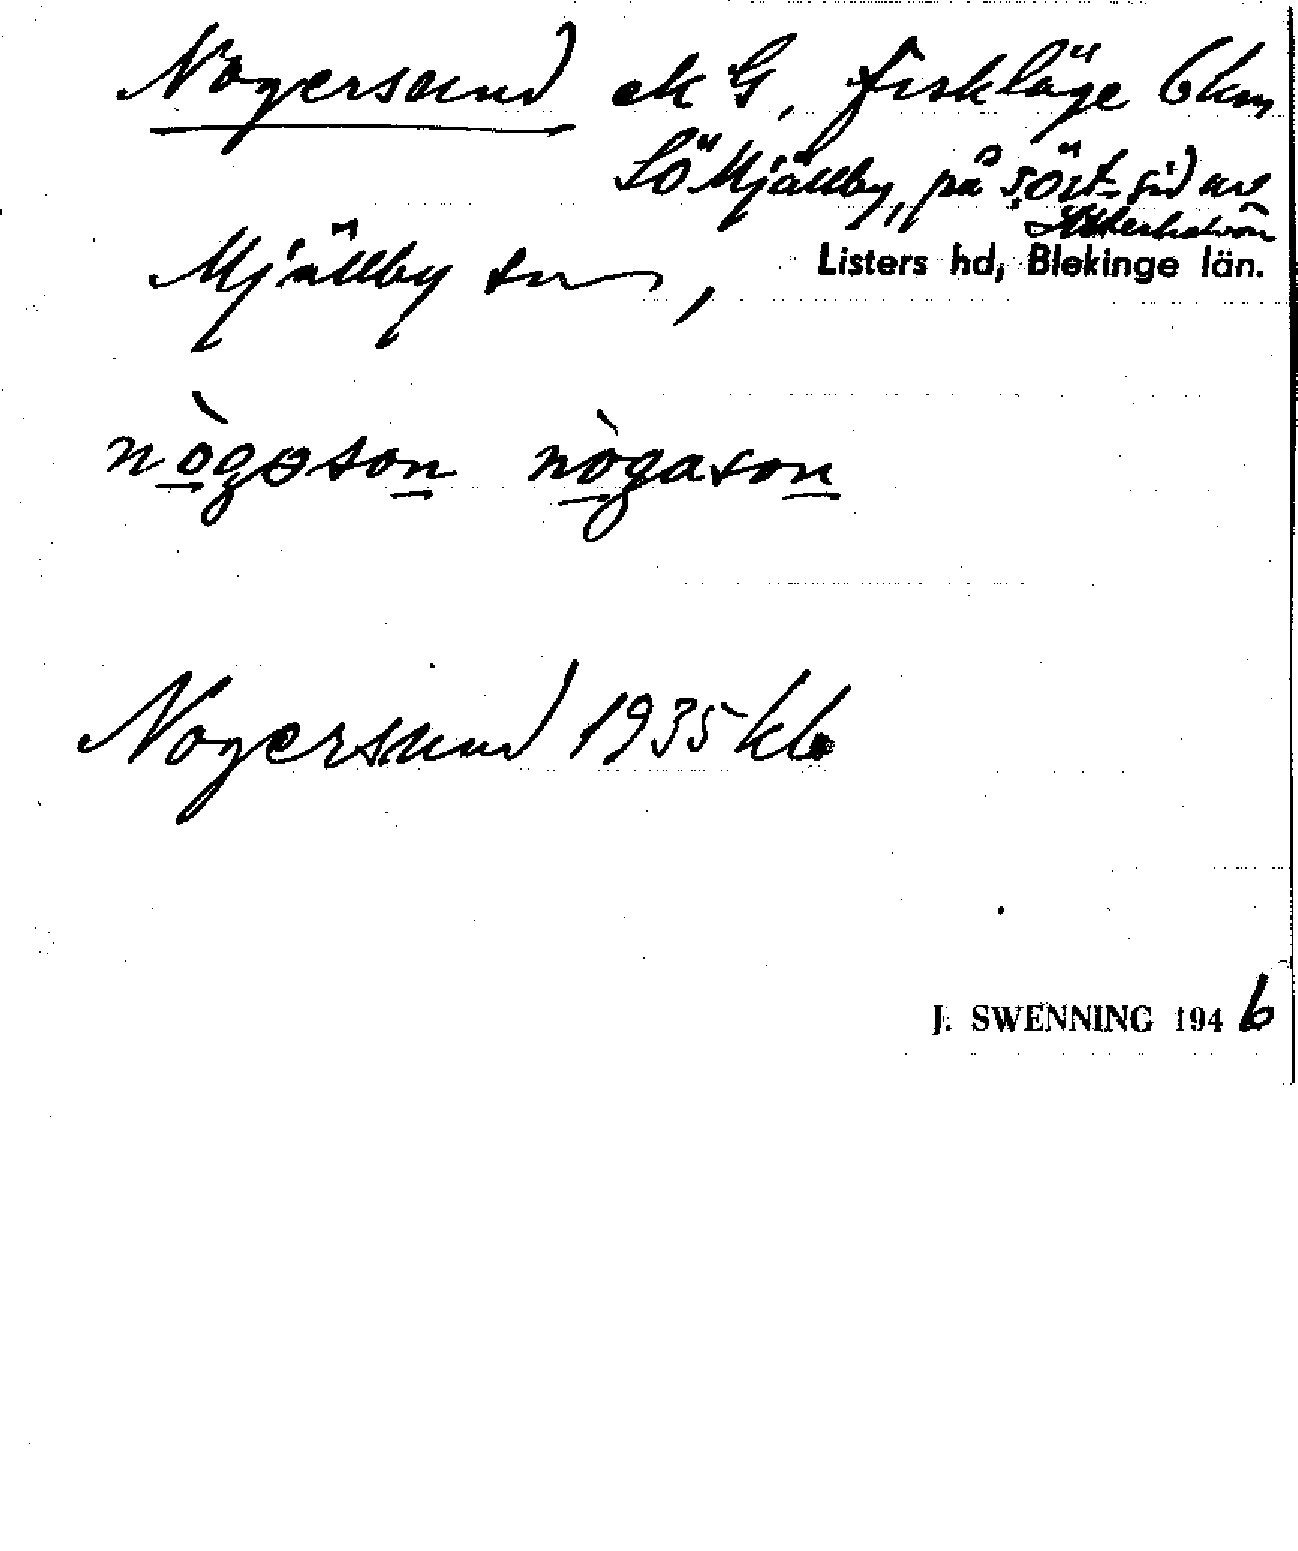 Nogersund ek G, fiskläge 6 km
SÖ Mjällby, på s. öst-sid av
Listerhalvön
Mjällby sn, Listers hd, Blekinge län.
nògəson nògason
Nogersund 1935 kb
J. SWENNING 1946